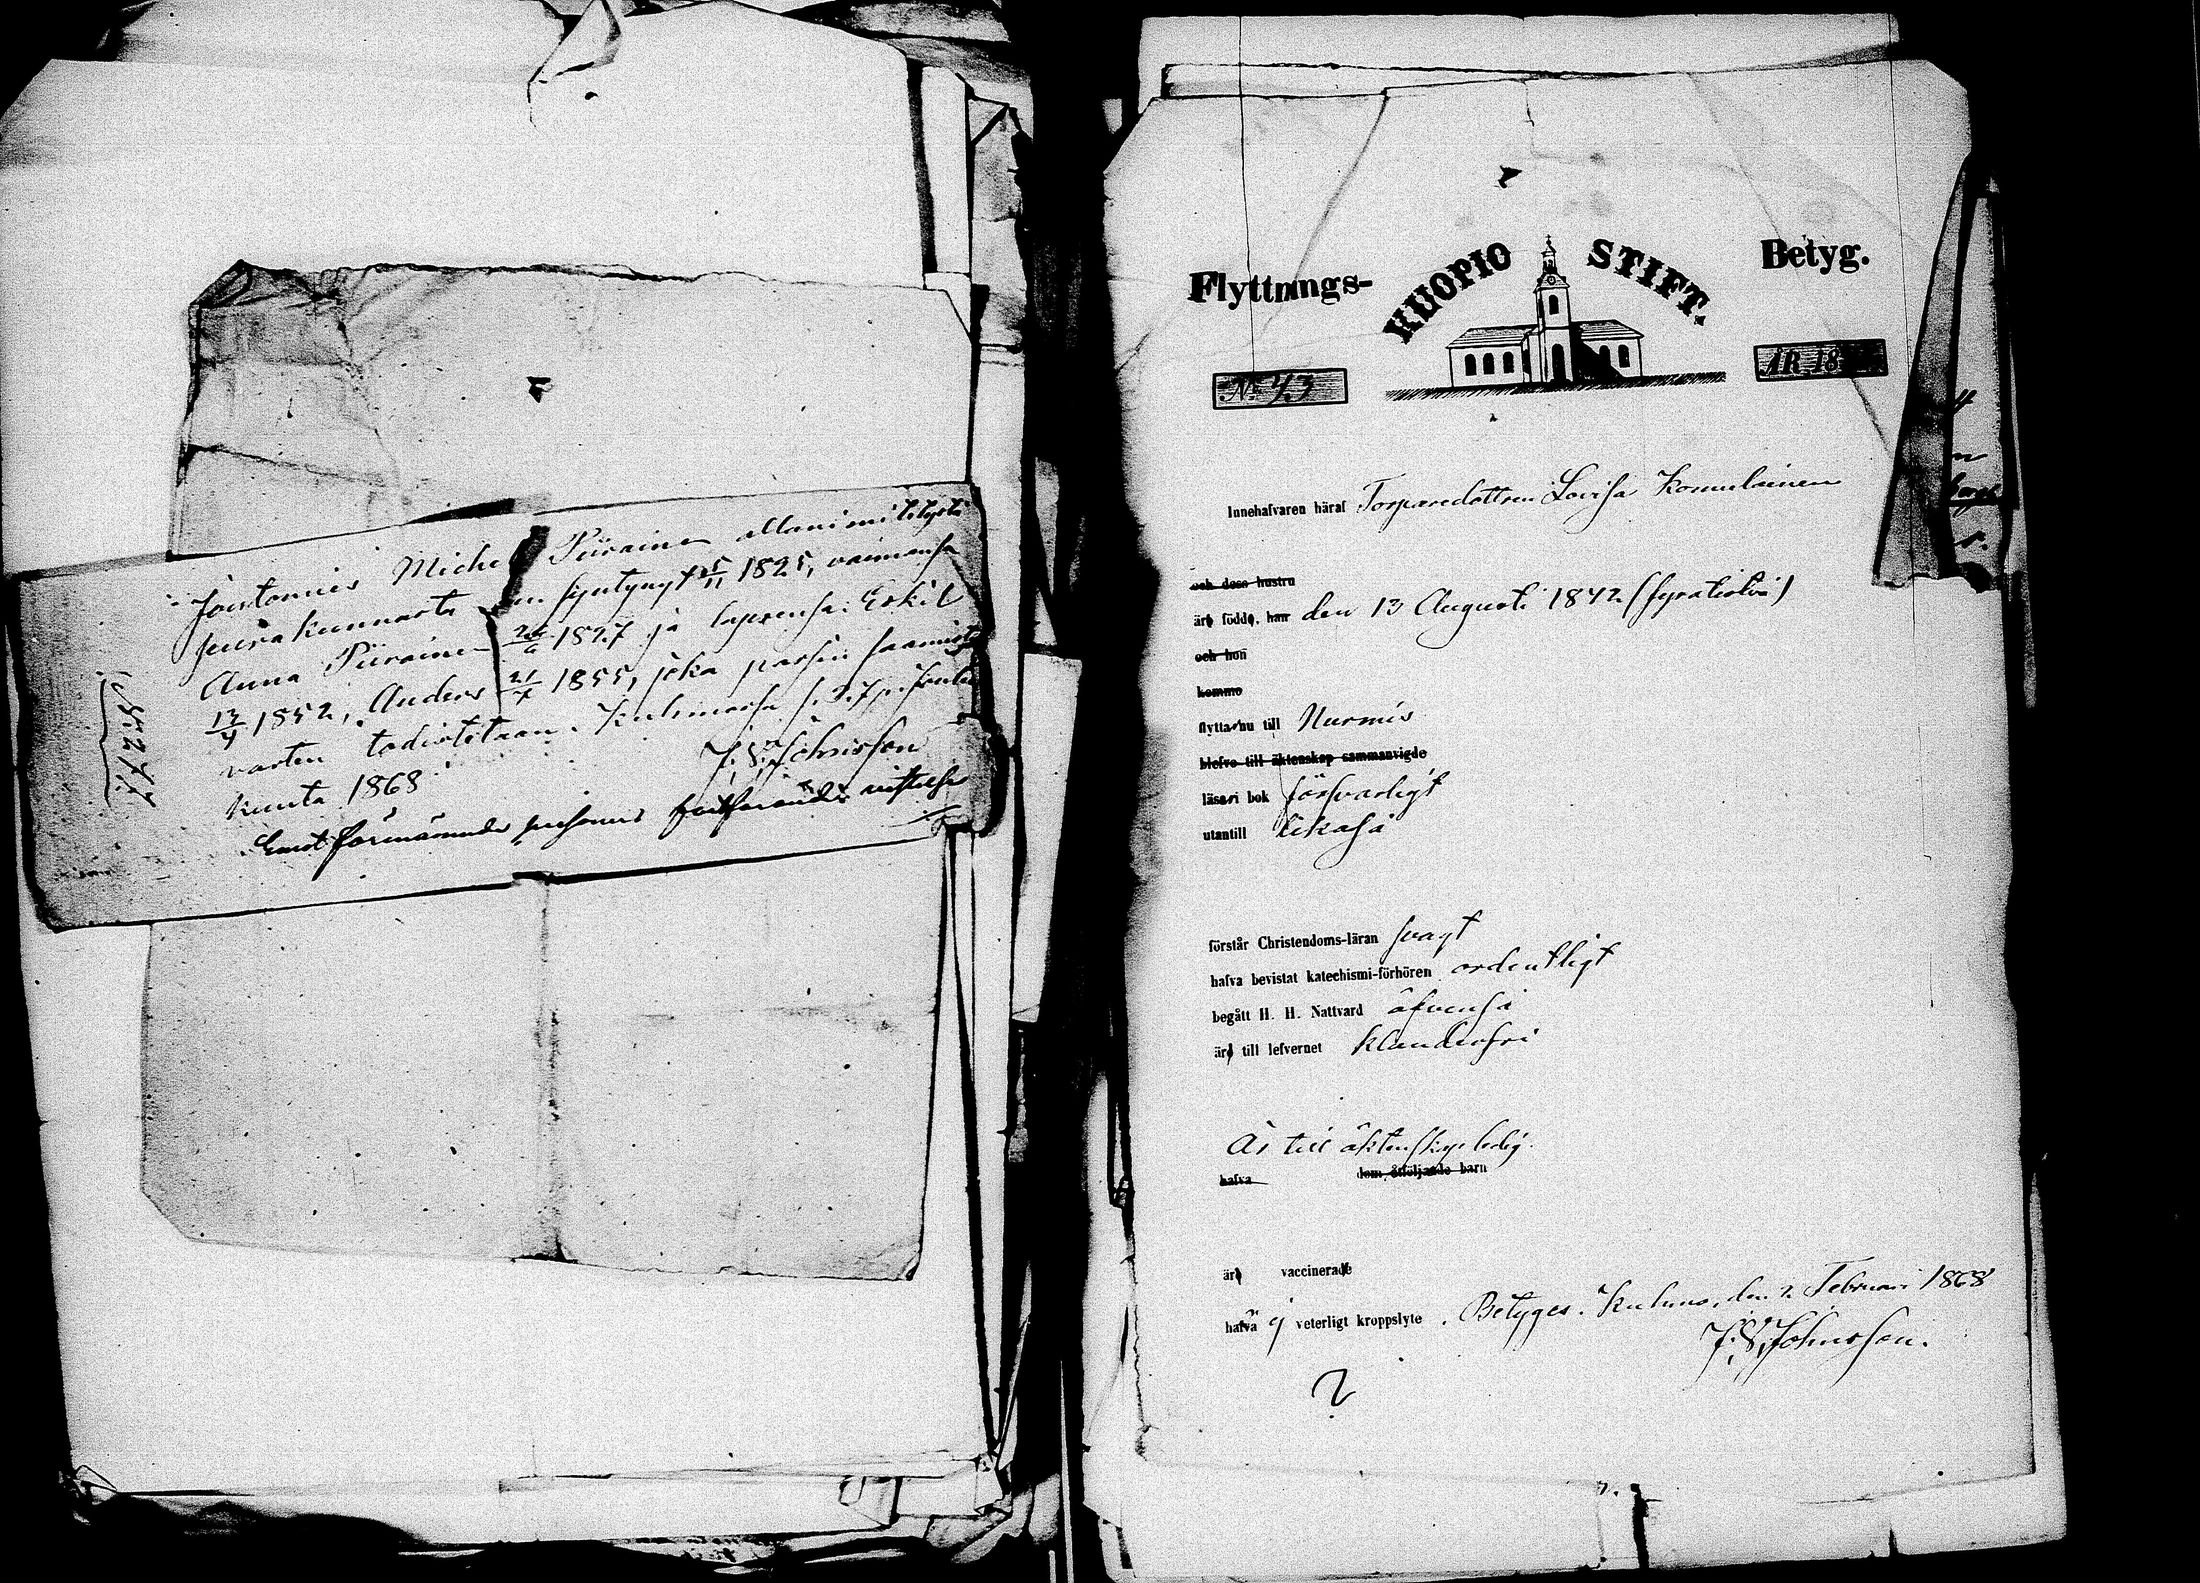 Joutomies Michel Piirainen allanimitetystä
seurakunnasta on syntynyt 5/11 1825, vaimonsa
Anna Piirainen 1827 ja lapsensa: Eskil
13/4 1852, Anders 21/7 1855, joka passin saamista
varten todistetaan. Kuhmossa s. 3. p. Joulu
kuuta 1868
J. S. Johnsson
Emot förenämnde persons
Flyttnings-
KUOPIO STIFT.
Betyg.
No 43
ÅR 18
Innehafvaren häraf Torparedottren Lovisa Komulainen
och dess hustru
äro född, han den 13 Augusti 1842 (fyratiotvå)
och hon
komme
flytta nu till Nurmis
blefvo till äktenskap sammanvigde
läsa i bok försvarligt
utantill likaså
förstår Christendoms-läran svagt
hafva bevistat katechismi-förhören ordentligt
begått H. H. Nattvard äfvenså
äro till lefvernet klanderfri
Är till äktenskap ledig.
hafva dem åtföljande barn
äro vaccinerade
hafva ej veterligt kroppslyte. Betygas. Kuhmo, den 2 Februari 1868
J. S. Johnsson.